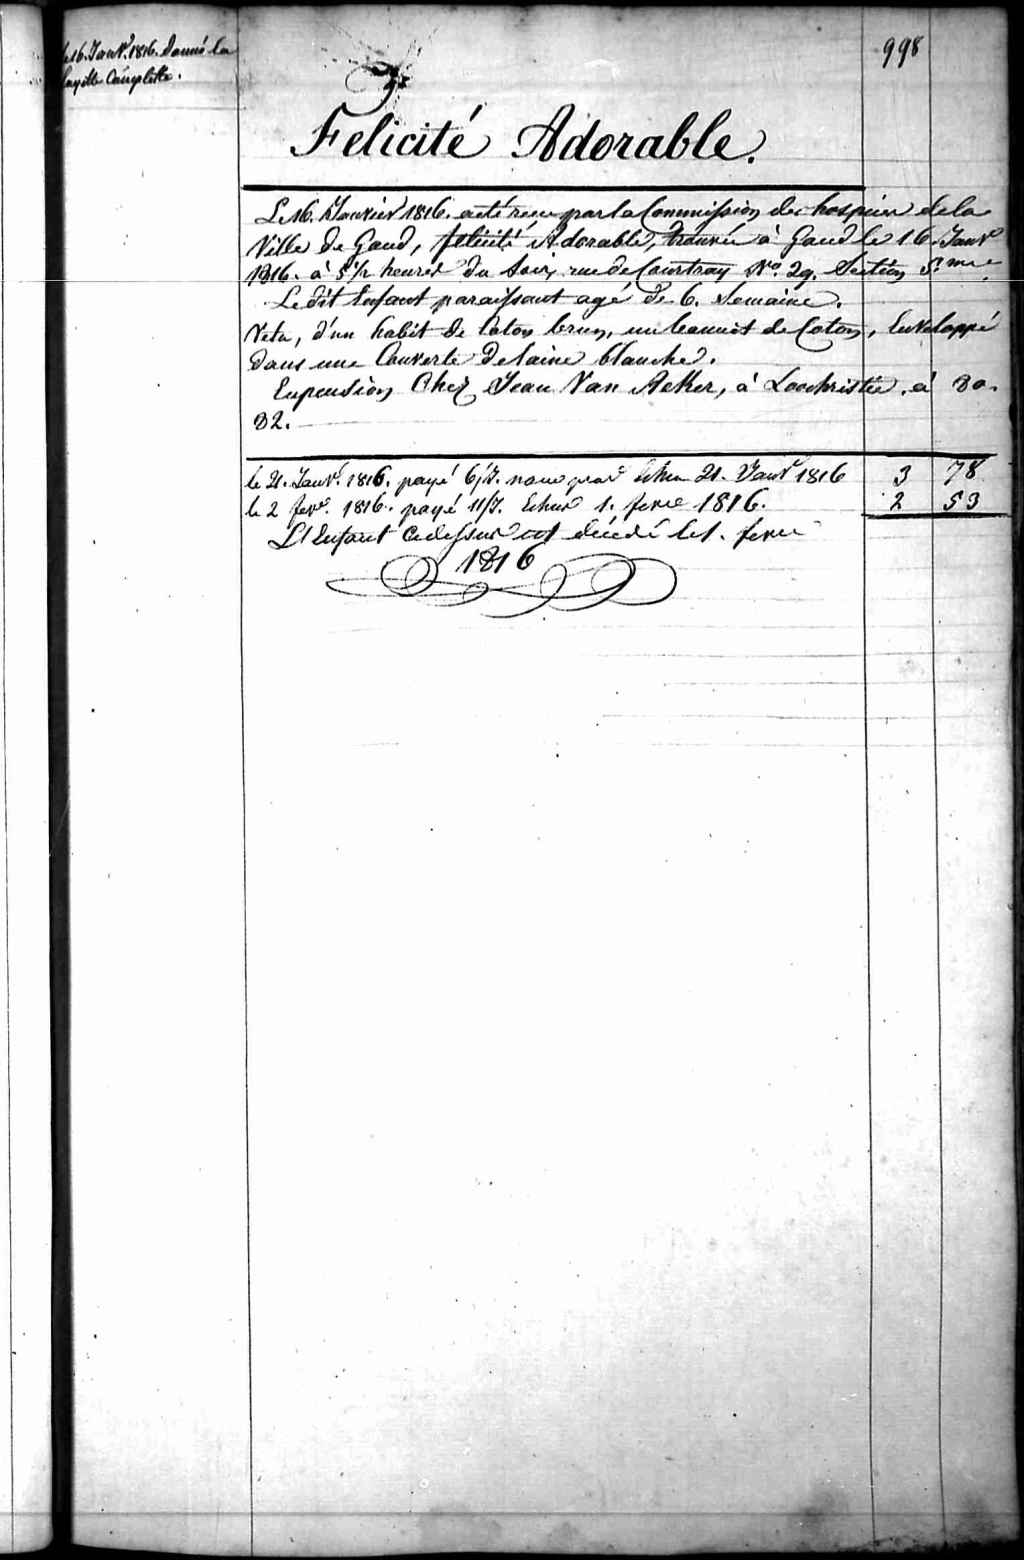 le 16. Janv.r 1816. donné la
layette Complette.
998
Felicité Adorable.
Le 16. Janvier 1816. a eté reçue par la Commission des hospices de la
Ville de Gand, felicité Adorable, trouvée à Gand le 16. Janv.r
1816. à 5 1/2 heures du Soir, rue de Courtray No. 29. Section 5.me
Le dit Enfant paraissant agé de 6. Semaine.
Vetu, d'un habit de Coton brun, un bonnet de Coton, Enveloppé
dans une Couverte de laine blanche.
En pension Chez Jean Van Acker, à Loochristie. à 30.
32.
le 21. Janv.r 1816. payé 6/7. echu 21. Janv.r 1816 3 78
le 2 fev.r 1816. payé 11/7. Echus 1. fevr 1816. 2 53
L'Enfant cidessus est décédé le 1. fevr
1816